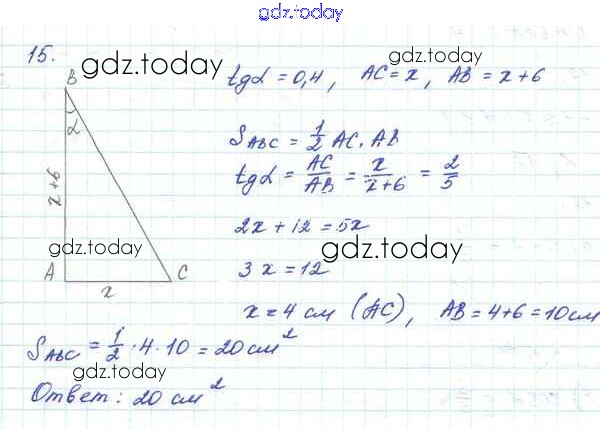 gdz.today
15.
gdz.today
B
α
x+6
A
C
x
gdz.today
tgα = 0,4, AC = x, AB = x+6
gdz.today
S ABC = 1/2 AC · AB
tgα = AC/AB = x/x+6 = 2/5
gdz.today
2x + 12 = 5x
gdz.today
3x = 12
x = 4 см (AC), AB = 4+6 = 10 см
gdz.today
S ABC = 1/2 · 4 · 10 = 20 см²
gdz.today
Ответ: 20 см²